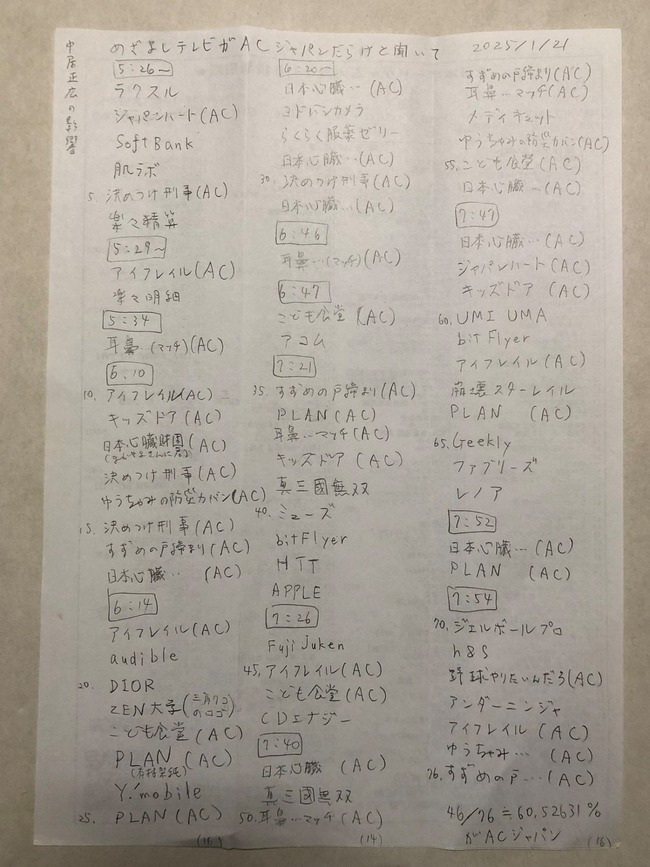 中居正広の影響
めざましテレビがACジャパンだらけと聞いて
2025/1/21
5:26〜
ラクスル
ジャパンハート(AC)
SoftBank
肌ラボ
5. 決めつけ刑事(AC)
楽々精算
5:29〜
アイフレイル(AC)
楽々明細
5:34
耳鼻…(マッチ)(AC)
6:10
10. アイフレイル(AC)
キッズドア(AC)
日本心臓財団(AC)
決めつけ刑事(AC)
ゆうちゃみの防災カバン(AC)
15. 決めつけ刑事(AC)
すずめの戸締まり(AC)
日本心臓…(AC)
6:14
アイフレイル(AC)
audible
20. DIOR
ZEN大学(三角クゴのココ)
こども食堂(AC)
PLAN(AC)
Y!mobile
25. PLAN(AC)
(16)
6:20〜
日本心臓…(AC)
ヨドバシカメラ
らくらく服薬ゼリー
日本心臓…(AC)
30. 決めつけ刑事(AC)
日本心臓…(AC)
6:46
耳鼻…(マッチ)(AC)
6:47
こども食堂(AC)
アコム
7:21
35. すずめの戸締まり(AC)
PLAN(AC)
耳鼻…マッチ(AC)
キッズドア(AC)
真三國無双
40. ミューズ
bitFlyer
NTT
APPLE
7:26
Fuji Juken
45. アイフレイル(AC)
こども食堂(AC)
CDエナジー
7:40
日本心臓(AC)
真三國無双
50. 耳鼻…マッチ(AC)
(14)
すずめの戸締まり(AC)
耳鼻…マッチ(AC)
メディキュット
ゆうちゃみの防災カバン(AC)
55. こども食堂(AC)
日本心臓…(AC)
7:47
日本心臓…(AC)
ジャパンハート(AC)
キッズドア(AC)
60. UMI UMA
bitFlyer
アイフレイル(AC)
崩壊スターレイル
PLAN(AC)
65. Geekly
ファブリーズ
レノア
7:52
日本心臓…(AC)
PLAN(AC)
7:54
70. ジェルボールプロ
h&s
野球やりたいんだろ(AC)
アンダーニンジャ
アイフレイル(AC)
ゆうちゃみ…(AC)
76. すずめの戸…(AC)
46/76≒60.52631%
がACジャパン
(16)